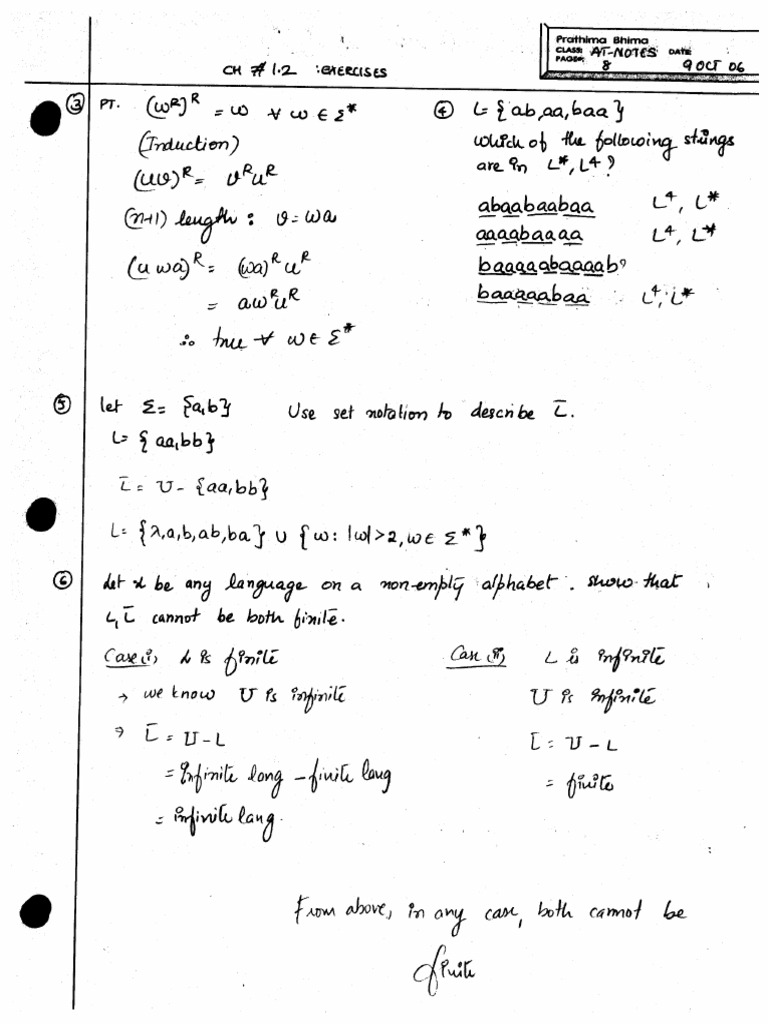 Prathima Bhima
CLASS: AT-NOTES DATE
PAGE#: 8 9 OCT 06
CH # 1.2 : EXERCISES
③ PT. (w^R)^R = w ∀ w ∈ Σ*
(Induction)
(uv)^R = v^R u^R
(n+1) length : v = wa
(u wa)^R = (wa)^R u^R
= a w^R u^R
∴ true ∀ w ∈ Σ*
④ L = {ab, aa, baa}
which of the following strings
are in L*, L⁴?
abaabaabaa L⁴, L*
aaaabaaaa L⁴, L*
baaaaabaaaab?
baaaaabaa L⁴, L*
⑤ let Σ = {a,b} Use set notation to describe L̅.
L = {aa, bb}
L̅ = U - {aa, bb}
L = {λ, a, b, ab, ba} ∪ {w: |w| > 2, w ∈ Σ*}
⑥ Let L be any language on a non-empty alphabet. show that
L, L̅ cannot be both finite.
Case (i) L is finite
→ we know U is infinite
⇒ L̅ = U - L
= Infinite long - finite lang
= infinite lang.
Case (ii) L is infinite
U is infinite
L̅ = U - L
= finite
From above, in any case, both cannot be
finite